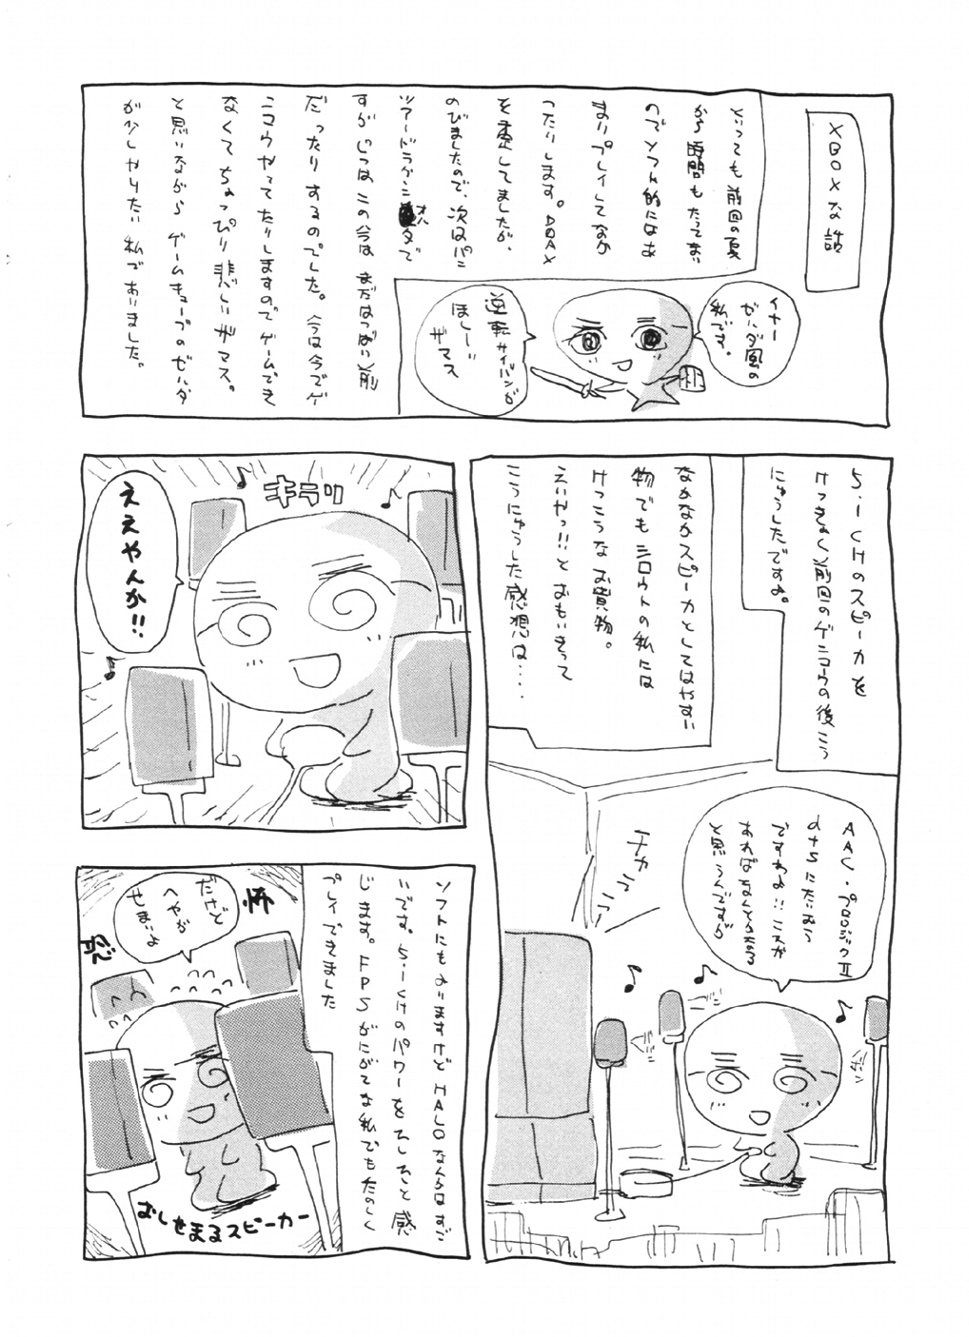 XBOXな話
といっても前回の夏
から時間もたってまい
のでソフト的にはあ
まりプレイしてなか
ったりします。DOAX
を楽してましたが、
のびましたので、次はパン
ツアードラグーンオルタで
すがじつはこの今はまだはつばい前
だったりするのでした。今は今でゲ
ニコウやってたりしますのでゲームできて
なくてちょっぴり悲しいザマス。
と思いながらゲームキューブのゼルダ
が少しやりたい私でありました。
イナー
ゼルダ風の
私です。
逆転サイバンが
ほしーー
ザマス
5.1CHのスピーカを
けっきょく前回のゲンコウの後こう
にゅうしたですよ。
なかなかスピーカとしてはやすい
物でもシロウトの私には
けっこうなお買物。
えいやっ!!とおもいきって
こうにゅうした感想は....
AAC・プロロジックII
ですわよ!!これが
あればなんとかなる
と思うんですが
チカ
キラリ
ええやんか!!
ソフトにもよりますけどHALOなんかはすご
いです。5.1CHのパワーをひしひしと感
じます。FPSがにがてな私でもたのしく
プレイできました
だけど
へやが
せまいよ
恐
怖
おしせまるスピーカー